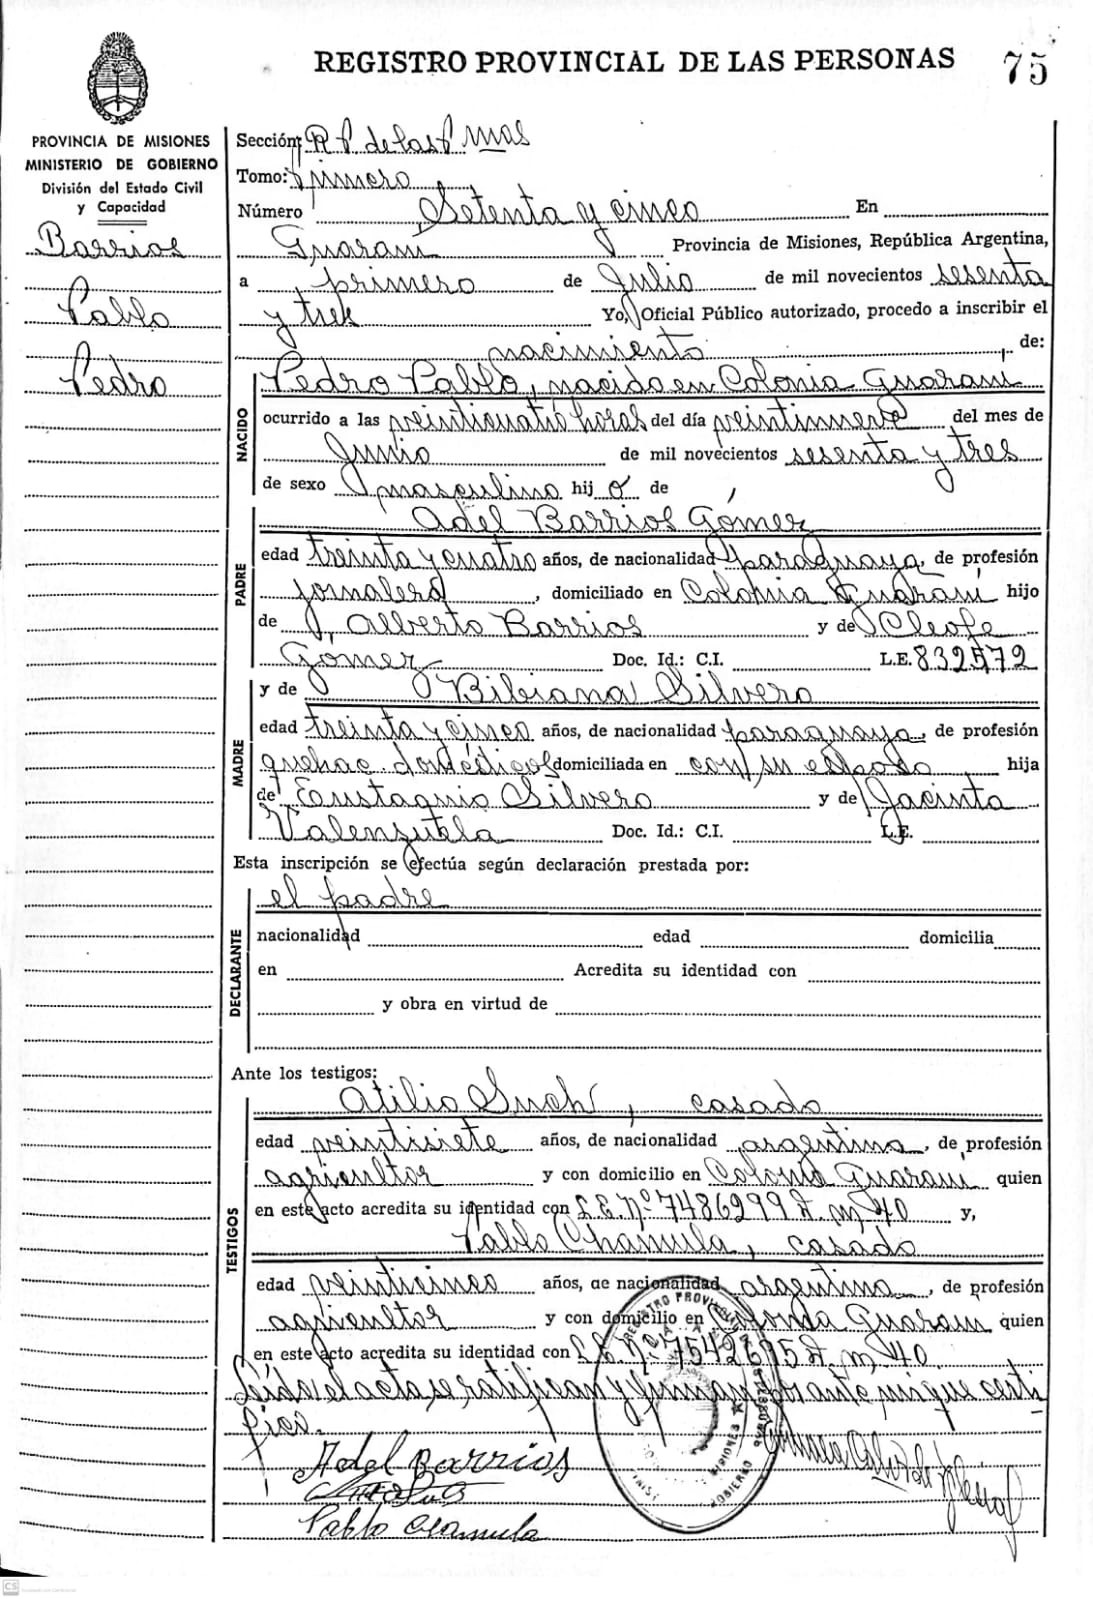 REGISTRO PROVINCIAL DE LAS PERSONAS 75
PROVINCIA DE MISIONES
MINISTERIO DE GOBIERNO
División del Estado Civil
y Capacidad
Barrios
Pablo
Pedro
Sección: R P de las P mas
Tomo: primero
Número Setenta y cinco En
Guaraní Provincia de Misiones, República Argentina,
a primero de Julio de mil novecientos sesenta
y tres Yo, Oficial Público autorizado, procedo a inscribir el
nacimiento de:
NACIDO
Pedro Pablo, nacido en Colonia Guaraní
ocurrido a las veinticuatro horas del día veintinueve del mes de
Junio de mil novecientos sesenta y tres
de sexo masculino hij o de
PADRE
Adel Barrios Gómez
edad treinta y cuatro años, de nacionalidad paraguaya, de profesión
jornalero, domiciliado en Colonia Guaraní hijo
de Alberto Barrios y de Cleofe
Gómez Doc. Id.: C.I. L.E. 832572
y de Bibiana Silvero
MADRE
edad treinta y cinco años, de nacionalidad paraguaya, de profesión
quehac. domésticos domiciliada en con su esposo hija
de Eustaquio Silvero y de Jacinta
Valenzuela Doc. Id.: C.I. L.E.
Esta inscripción se efectúa según declaración prestada por:
DECLARANTE
el padre
nacionalidad edad domicilia
en Acredita su identidad con
y obra en virtud de
Ante los testigos:
TESTIGOS
Atilio Such, casado
edad veintisiete años, de nacionalidad argentina, de profesión
agricultor y con domicilio en Colonia Guaraní quien
en este acto acredita su identidad con L.E. Nº 7486299 D. m 40 y,
Pablo Chamula, casado
edad veinticinco años, de nacionalidad argentina, de profesión
agricultor y con domicilio en Colonia Guaraní quien
en este acto acredita su identidad con L.E. Nº 7542695 D. m 40.
Leída el acta, se ratifican y firman por ante mi que certi
fico.
Adel Barrios
Pablo Chamula
REGISTRO PROVINCIAL DE LAS PERSONAS
MISIONES
GOBIERNO
CS